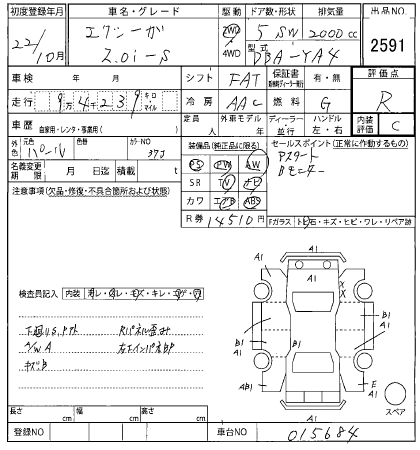 初度登録年月 車名・グレード 駆動 ドア数・形状 排気量 出品NO
22/10月 エクシーガ 2.0i-S 2WD 4WD 5 SW 2000cc 2591
型式 DBA-YA4
車検 年 月 シフト FAT 保証書 有・無 評価点
走行 9万4239 キロ マイル 冷房 AAC 燃料 G R
車歴 自家用・レンタ・事業用( ) 定員 人 外車モデル 年 ディーラー 並行 ハンドル 左・右 内装評価 C
外色 元色 パール 色替 カラーNO 37J 装備品(純正品に限る) セールスポイント(正常に作動するもの)
名義変更期限 月 日迄 積載 t PS PW AW Aスタート
SR TV ナビ Bモニター
注意事項(欠品・修復・不具合箇所および状態) カワ エアB ABS
R券 14510円 Fガラス トビ石・キズ・ヒビ・ワレ・リペア跡
検査員記入 内装
下廻りS
A/W A
キズB
A1
A1 A1
A1
X
X
B1 B1
A1 B1 A1
AB1 A1 E
A1
A1
スペア
長さ cm 幅 cm 高さ cm
登録NO 車台NO 015684